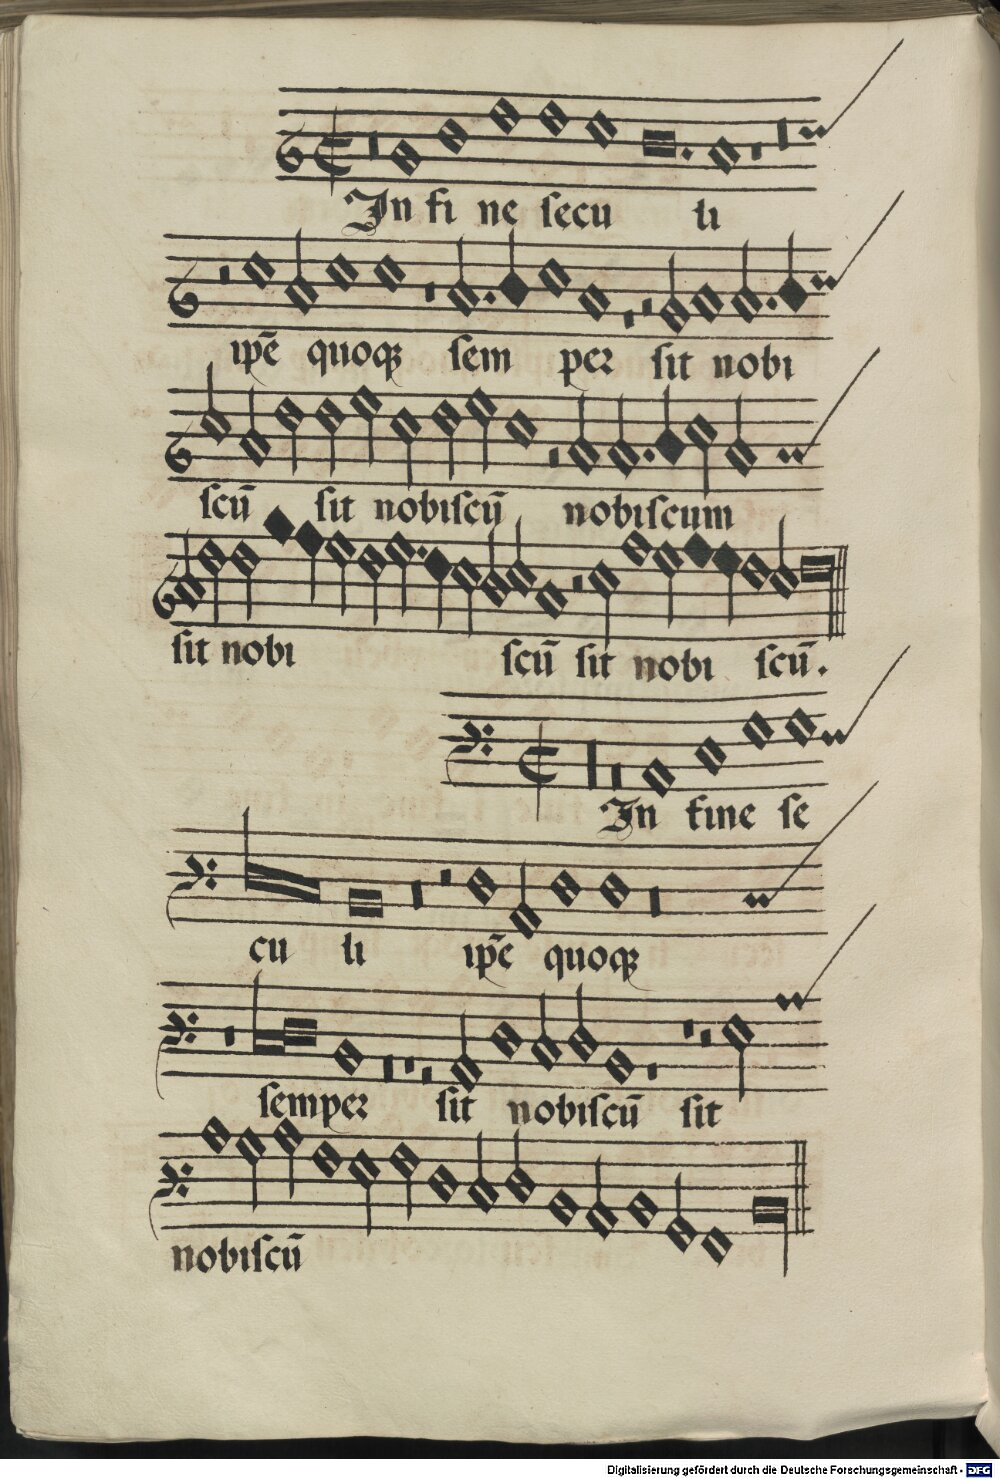 In fi ne ſecu li
ip̄e quoqꝫ ſem per ſit nobi
ſcū ſit nobiſcū nobiſcum
ſit nobi ſcū ſit nobi ſcū.
In fine ſe
cu li ip̄e quoqꝫ
ſemper ſit nobiſcū ſit
nobiſcū
Digitalisierung gefördert durch die Deutsche Forschungsgemeinschaft - DFG